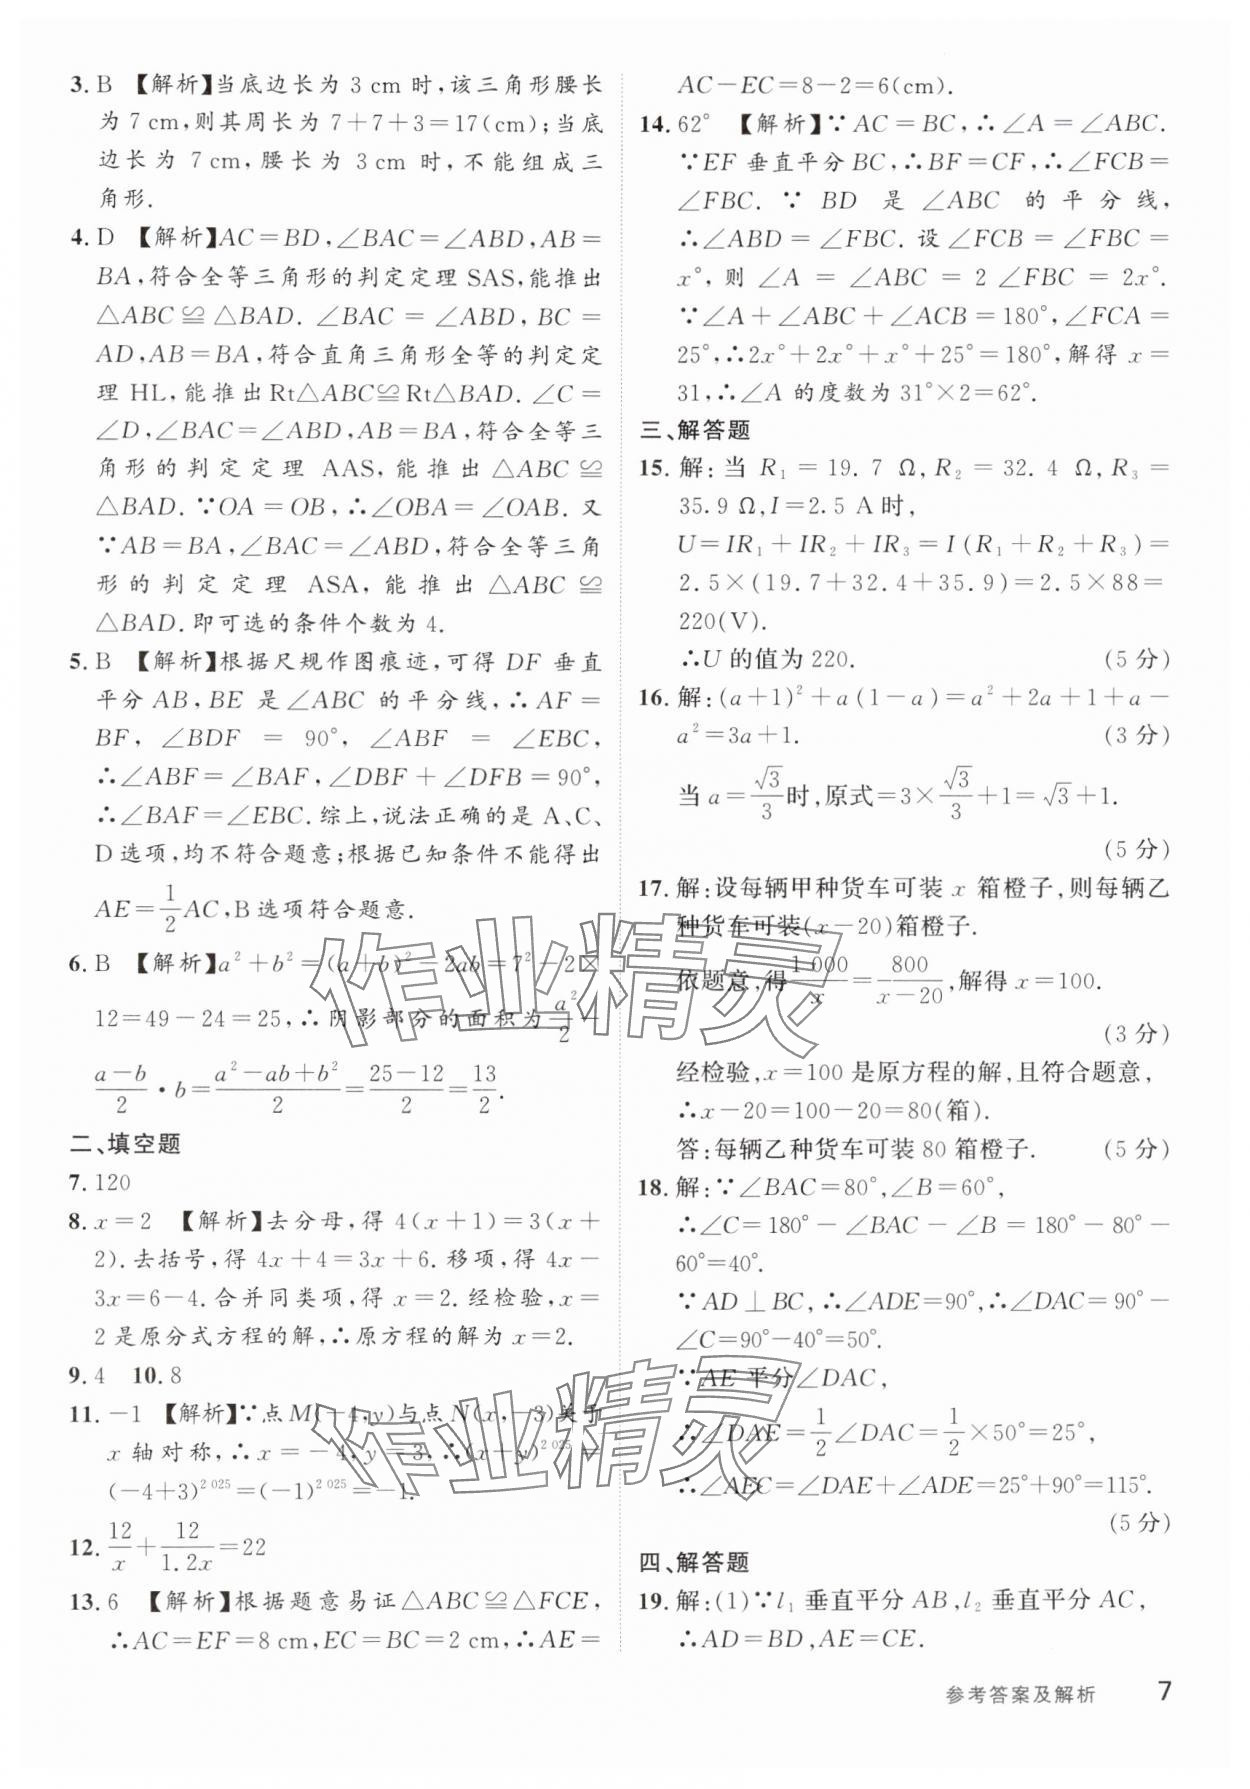 3. B 【解析】当底边长为 3 cm 时,该三角形腰长
为 7 cm,则其周长为 7+7+3=17(cm);当底
边长为 7 cm,腰长为 3 cm 时,不能组成三
角形.
4. D 【解析】AC=BD,∠BAC=∠ABD,AB=
BA,符合全等三角形的判定定理 SAS,能推出
△ABC≌△BAD. ∠BAC=∠ABD,BC=
AD,AB=BA,符合直角三角形全等的判定定
理 HL,能推出 Rt△ABC≌Rt△BAD. ∠C=
∠D,∠BAC=∠ABD,AB=BA,符合全等三
角形的判定定理 AAS,能推出△ABC≌
△BAD. ∵OA=OB,∴∠OBA=∠OAB. 又
∵AB=BA,∠BAC=∠ABD,符合全等三角
形的判定定理 ASA,能推出△ABC≌
△BAD. 即可选的条件个数为 4.
5. B 【解析】根据尺规作图痕迹,可得 DF 垂直
平分 AB,BE 是∠ABC 的平分线,∴AF=
BF,∠BDF=90°,∠ABF=∠EBC,
∴∠ABF=∠BAF,∠DBF+∠DFB=90°,
∴∠BAF=∠EBC. 综上,说法正确的是 A、C、
D 选项,均不符合题意;根据已知条件不能得出
AE=1/2AC,B 选项符合题意.
6. B 【解析】a²+b²=(a+b)²-2ab=7²-2×
12=49-24=25,∴阴影部分的面积为 a²/2-
(a-b)/2·b=(a²-ab+b²)/2=(25-12)/2=13/2.
二、填空题
7. 120
8. x=2 【解析】去分母,得 4(x+1)=3(x+
2). 去括号,得 4x+4=3x+6. 移项,得 4x-
3x=6-4. 合并同类项,得 x=2. 经检验,x=
2 是原分式方程的解,∴原方程的解为 x=2.
9. 4 10. 8
11. -1 【解析】∵点 M(-4,y)与点 N(x,-3)关于
x 轴对称,∴x=-4,y=3,∴(x+y)^2 025=
(-4+3)^2 025=(-1)^2 025=-1.
12. 12/x+12/1.2x=22
13. 6 【解析】根据题意易证△ABC≌△FCE,
∴AC=EF=8 cm,EC=BC=2 cm,∴AE=
AC-EC=8-2=6(cm).
14. 62° 【解析】∵AC=BC,∴∠A=∠ABC.
∵EF 垂直平分 BC,∴BF=CF,∴∠FCB=
∠FBC. ∵BD 是∠ABC 的平分线,
∴∠ABD=∠FBC. 设∠FCB=∠FBC=
x°,则∠A=∠ABC=2∠FBC=2x°.
∵∠A+∠ABC+∠ACB=180°,∠FCA=
25°,∴2x°+2x°+x°+25°=180°,解得 x=
31,∴∠A 的度数为 31°×2=62°.
三、解答题
15. 解:当 R₁=19.7 Ω,R₂=32.4 Ω,R₃=
35.9 Ω,I=2.5 A 时,
U=IR₁+IR₂+IR₃=I(R₁+R₂+R₃)=
2.5×(19.7+32.4+35.9)=2.5×88=
220(V).
∴U 的值为 220. (5 分)
16. 解:(a+1)²+a(1-a)=a²+2a+1+a-
a²=3a+1. (3 分)
当 a=√3/3时,原式=3×√3/3+1=√3+1.
(5 分)
17. 解:设每辆甲种货车可装 x 箱橙子,则每辆乙
种货车可装(x-20)箱橙子.
依题意,得1 000/x=800/(x-20),解得 x=100.
(3 分)
经检验,x=100 是原方程的解,且符合题意,
∴x-20=100-20=80(箱).
答:每辆乙种货车可装 80 箱橙子. (5 分)
18. 解:∵∠BAC=80°,∠B=60°,
∴∠C=180°-∠BAC-∠B=180°-80°-
60°=40°.
∵AD⊥BC,∴∠ADE=90°,∴∠DAC=90°-
∠C=90°-40°=50°.
∵AE 平分∠DAC,
∴∠DAE=1/2∠DAC=1/2×50°=25°,
∴∠AEC=∠DAE+∠ADE=25°+90°=115°.
(5 分)
四、解答题
19. 解:(1)∵l₁ 垂直平分 AB,l₂ 垂直平分 AC,
∴AD=BD,AE=CE.
参考答案及解析 7
作业精灵
作业精灵